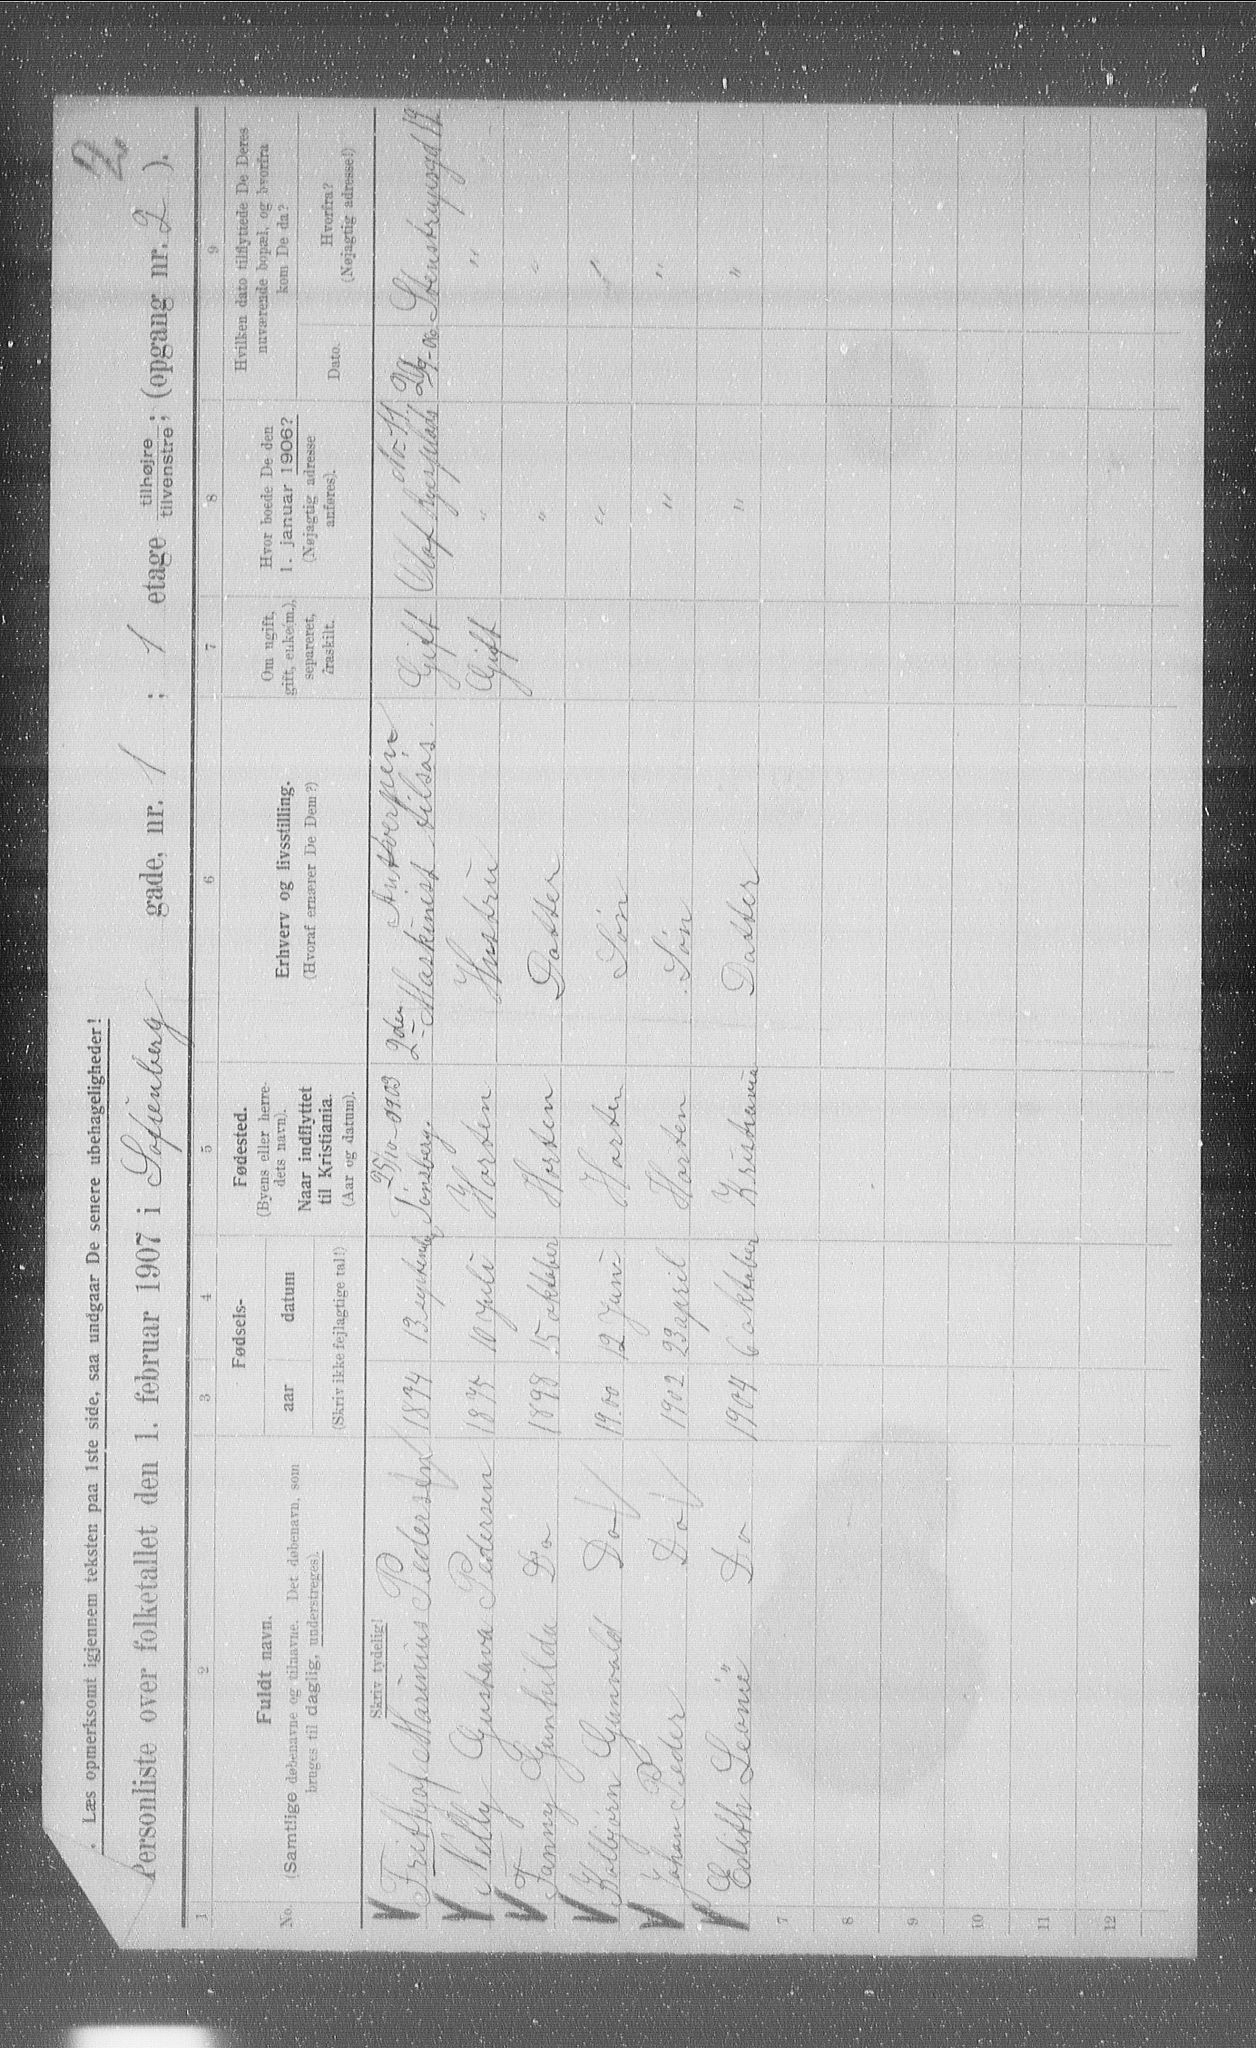 2
Læs opmerksomt igjennem teksten paa 1ste side, saa undgaar De senere ubehageligheder!
Personliste over folketallet den 1. februar 1907 i Sofienberg gade, nr. 1 ; 1 etage tilhøjre / tilvenstre; (opgang nr. 2 ).
1 2 3 4 5 6 7 8 9
No.
Fuldt navn.
(Samtlige døbenavne og tilnavne. Det døbenavn, som
bruges til daglig, understreges).
Fødsels-
aar datum
(Skriv ikke fejlagtige tal!)
Fødested.
(Byens eller herre-
dets navn).
Naar indflyttet
til Kristiania.
(Aar og datum).
Erhverv og livsstilling.
(Hvoraf ernærer De Dem?)
Om ugift,
gift, enke(m.),
separeret,
fraskilt.
Hvor boede De den
1. januar 1906?
(Nøjagtig adresse
anføres).
Hvilken dato tilflyttede De Deres
nuværende bopæl, og hvorfra
kom De da?
Dato.
Hvorfra?
(Nøjagtig adresse!)
Skriv tydelig!
25/10-1903 2den Antverpen No 11
Frithjof Marinius Pedersen 1874 13 september Tønsberg. Maskinist tilsøs. Gift Olaf Ryesplads 29/9-06 Steenstrupsgd 12
Nelly Gustava Pedersen 1875 10 Juli Horten Hustru Gift " "
Fanny Gunhilda Do 1898 15 oktober Horten Datter " "
Kolbjørn Gunvald Do 1900 12 Juni Horten Søn " "
Johan Peder Do 1902 23 april Horten Søn " "
Edith Leonie Do 1904 6 oktober Kristiania Datter " "
7
8
9
10
11
12